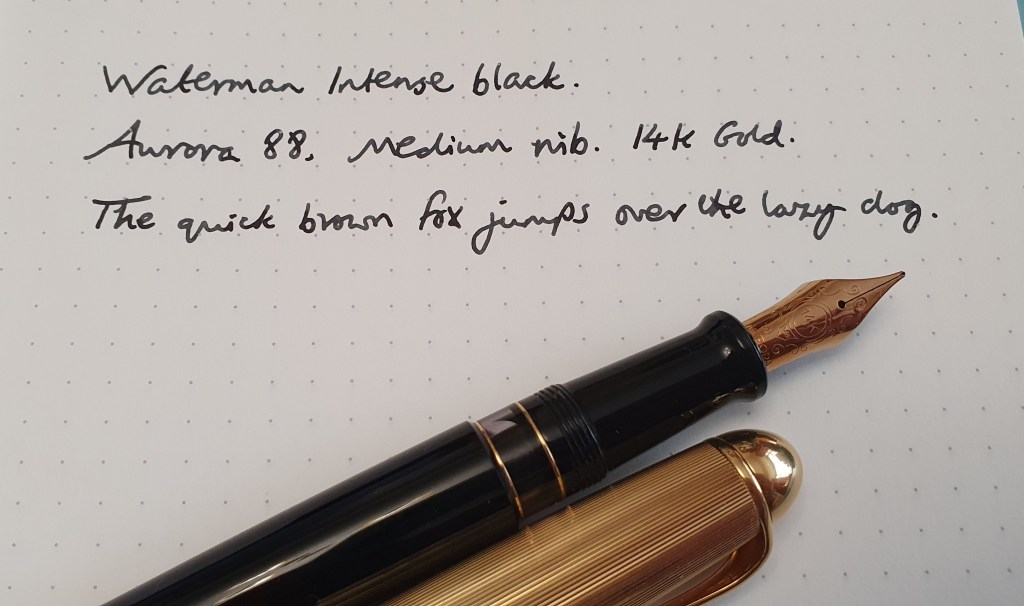 Waterman Intense black.
Aurora 88, Medium nib. 14k Gold.
The quick brown fox jumps over the lazy dog.